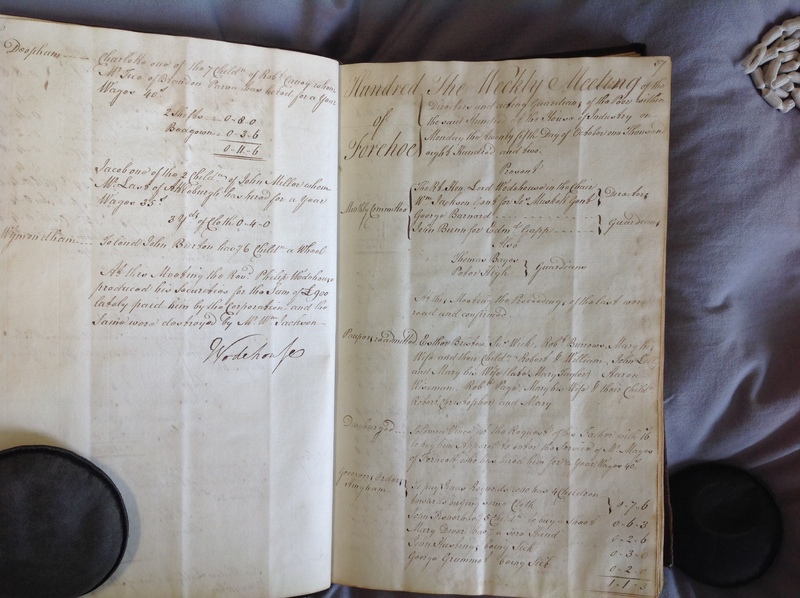 Deopham Charlotte one of the 7 Childn of Robt Canay whom
Mr Tice of Brandon Parva has hired for a Year
Wages 40s
2 Shifts 0-8-0
Bedgown 0-3-6
0-11-6
Jacob one of the 2 Childn of John Miller whom
Mr Last of Attleburgh has hired for a Year
Wages 35s
3 Yds of Cloth 0-4-0
Wymondham To lend John Burton has 6 Childn a Wheel
At this Meeting the Honl Philip Wodehouse
produced his Securities for the Sum of £900
lately paid him by the Corporation and the
same were destroyed by Mr Wm Jackson
Wodehouse
37
Hundred of Forehoe
The Weekly Meeting of the
Directors and acting Guardians of the Poor within
the said Hundred at the House of Industry on
Monday the twenty fifth Day of October one Thousand
eight Hundred and two.
Present
Monthly Committee
The Rt Hon. Lord Wodehouse in the Chair
Wm Jackson Gent for Sir Gent
Directors
George Barnard
John Bunn for Edmd Gapp
Guardians
Also
Thomas Bayes
Peter High
Guardians
At this Meeting the Proceedings of the last were
read and confirmed
Paupers admitted Esther Barton Sarh Robt Burrows Mary his
Wife and their Childn Robert & William, John
and Mary his Wife Mary Taylor Aaron
Wiseman Robt Page Mary his Wife & their Childn
Robert Christopher and Mary
Discharged at the Request of his Father with
to buy him Apparel to enter the Service of Mr Mayes
of who has hired him for a Year Wages 40s
Governor Orders
Hingham
To pay Isaac Reynolds who has 4 Children
towards buying some Cloth 0-7-6
John has 3 Childn to buy 0-6-3
Mary Dover has a sore Hand 0-2-6
John being Sick 0-3-0
George Grummet being Sick 0-2-0
1-1-3